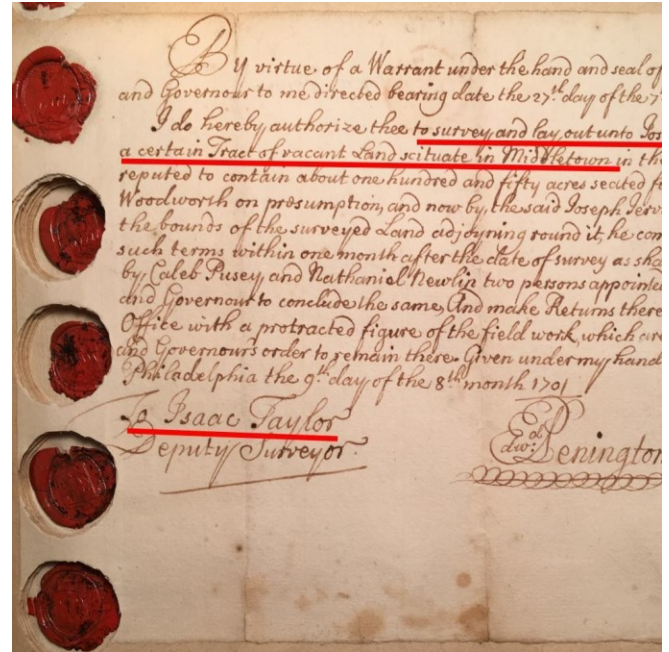 By virtue of a Warrant under the hand and seal of
and Governour to me directed bearing date the 27th day of the 7
I do hereby authorize thee to survey and lay out unto Jos
a certain Tract of vacant Land scituate in Middletown in th
reputed to contain about one hundred and fifty acres seated f
Woodworth on presumption, and now by the said Joseph Jerv
the bounds of the surveyed Land adjoyning round it, he com
such terms within one month after the date of survey as sha
by Caleb Pusey and Nathaniel Newlin two persons appointed
and Governour to conclude the same, And make Returns there
Office with a protracted figure of the field work, which are
and Governours order to remain there. Given under my hand
Philadelphia the 9th day of the 8th month 1701
To Isaac Taylor
Deputy Surveyor.
Edwd: Penington